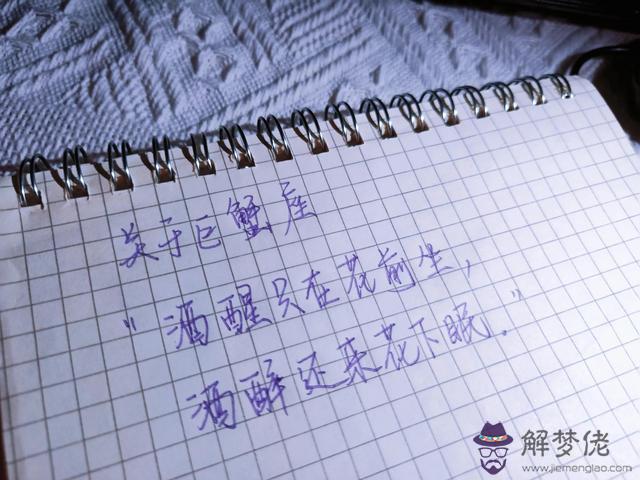 关于巨蟹座
"酒醒只在花前生，
酒醉还来花下眠."
解梦佬
www.jiemenglao.com